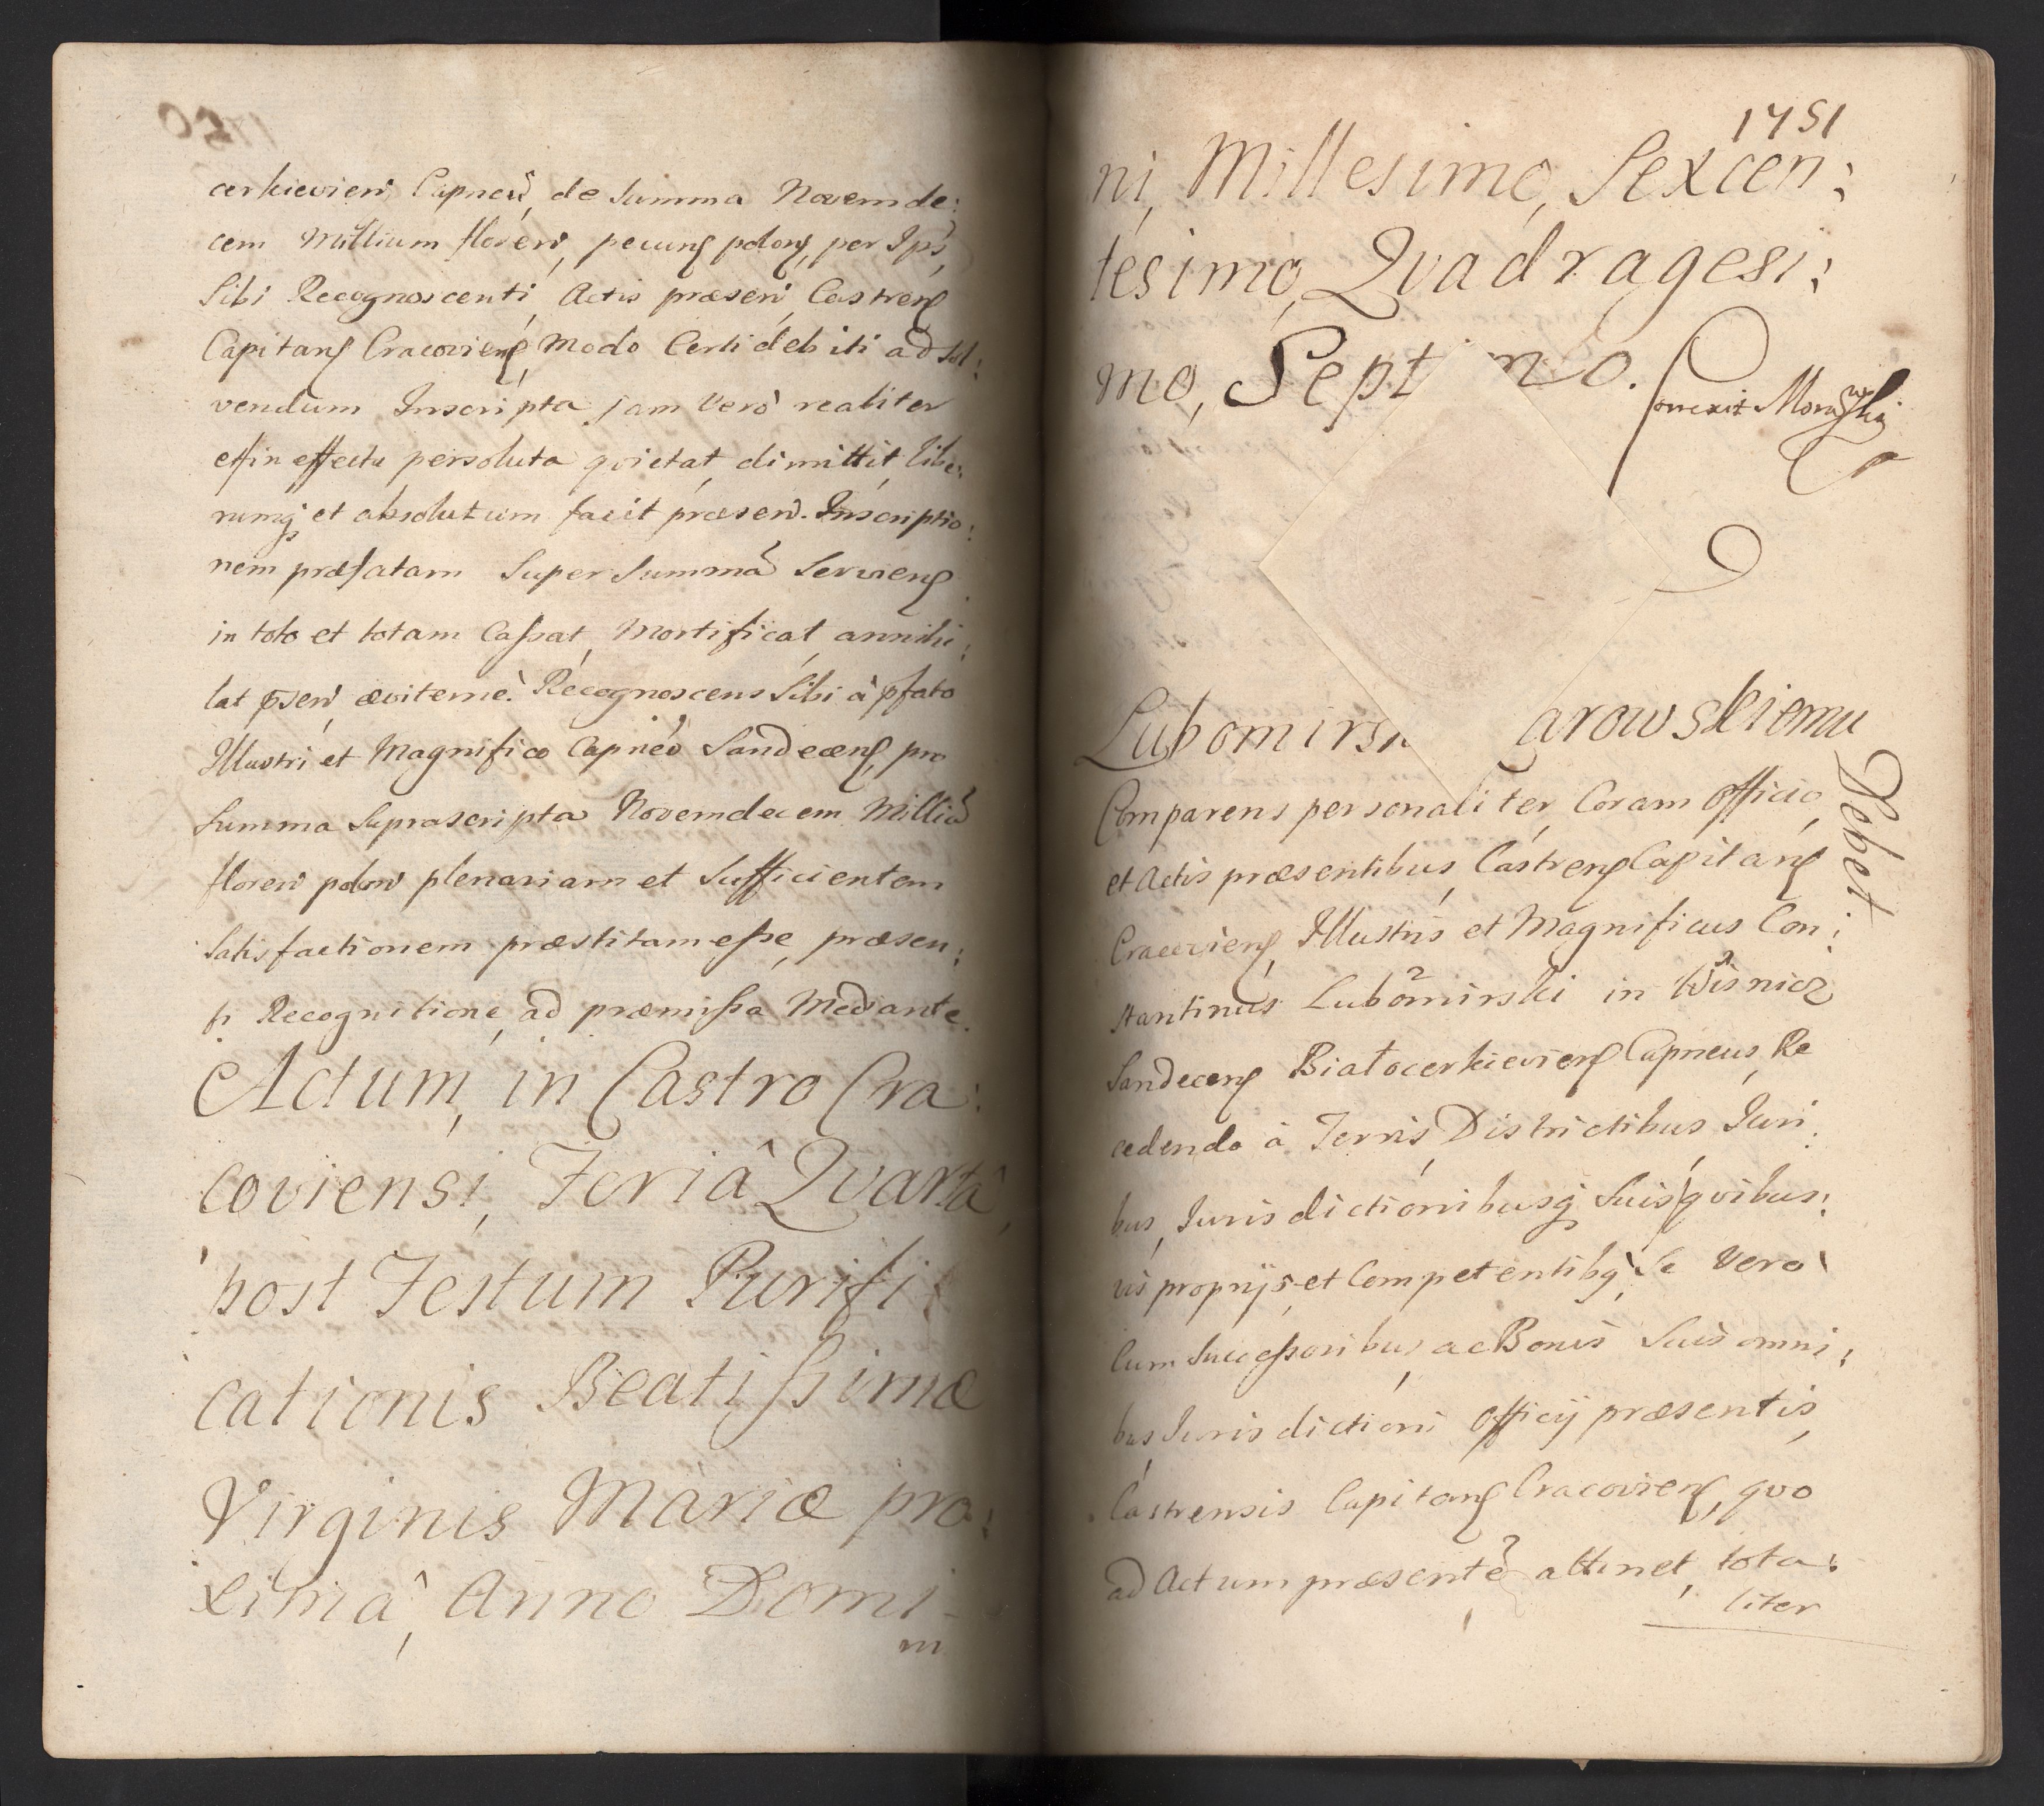 cerkievien Capneu, de Summa Novemde:
cem Millium floren, pecunę polonę, per Ips,
Sibi Recognoscenti, Actis præsen, Castrenę
Capitanę Cracovienę, Modo Certi debiti ad sol:
vendum Inscripta, jam verò realiter
et in effectu persoluta qvietat, dimittit, libe:
rumq et absolutum facit præsen. Inscriptio:
nem præfatam Super Summã Servienę
in toto et totam Cassat, Mortificat, annihi:
lat pñsen, æviternè. Recognoscens Sibi à pfato
Illustri et Magnifico Capneo Sandecenę, pro
Summa Suprascripta Novemdecem Milliũ
floren polon plenariam et Sufficientem
Satisfactionem præstitam esse, præsen:
ti Recognitione, ad præmissa Mediante.
Actum, in Castro Cra:
coviensi, Feriâ Qvartâ,
post Festum Purifi:
cationis Beatissimæ
Virginis Mariæ pro:
ximâ, Anno Domi-
ni
1751
ni, Millesimo, Sexcen:
tesimo, Qvadragesi:
mo, Sept mo.
Correxit Morawski
Lubomirsk arowskiemu
Debet
Comparens personaliter Coram Officio,
et Actis præsentibus, Castrenę Capitanę
Cracovienę, Illustris et Magnificus Con:
stantinus Lubomirski in Wisnicz
Sandecenę Białocerkievienę Capneus, Re
cedendo à Terris, Districtibus, Juri:
bus, Jurisdictionibusq Suis qvibus:
vis proprijs et Competentibq, Se verò
Cum Successoribus, ac Bonis Suis omni:
bus Jurisdictioni Officij præsentis,
Castrensis Capitanę Cracovienę, qvo
ad Actum præsentẽ attinet, tota:
liter